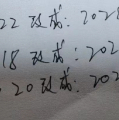 22 改成：2028
18 改成：202
20 改成：202